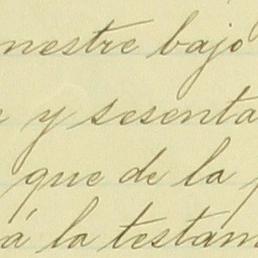 mestre bajo
y sesenta
que de la
á la testam